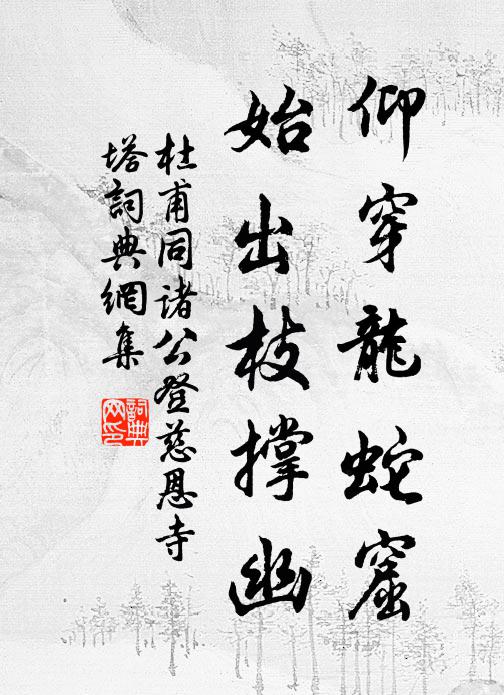 仰穿龍蛇窟
始出枝撐幽
杜甫同諸公登慈恩寺
塔詞典網集
詞典
网印